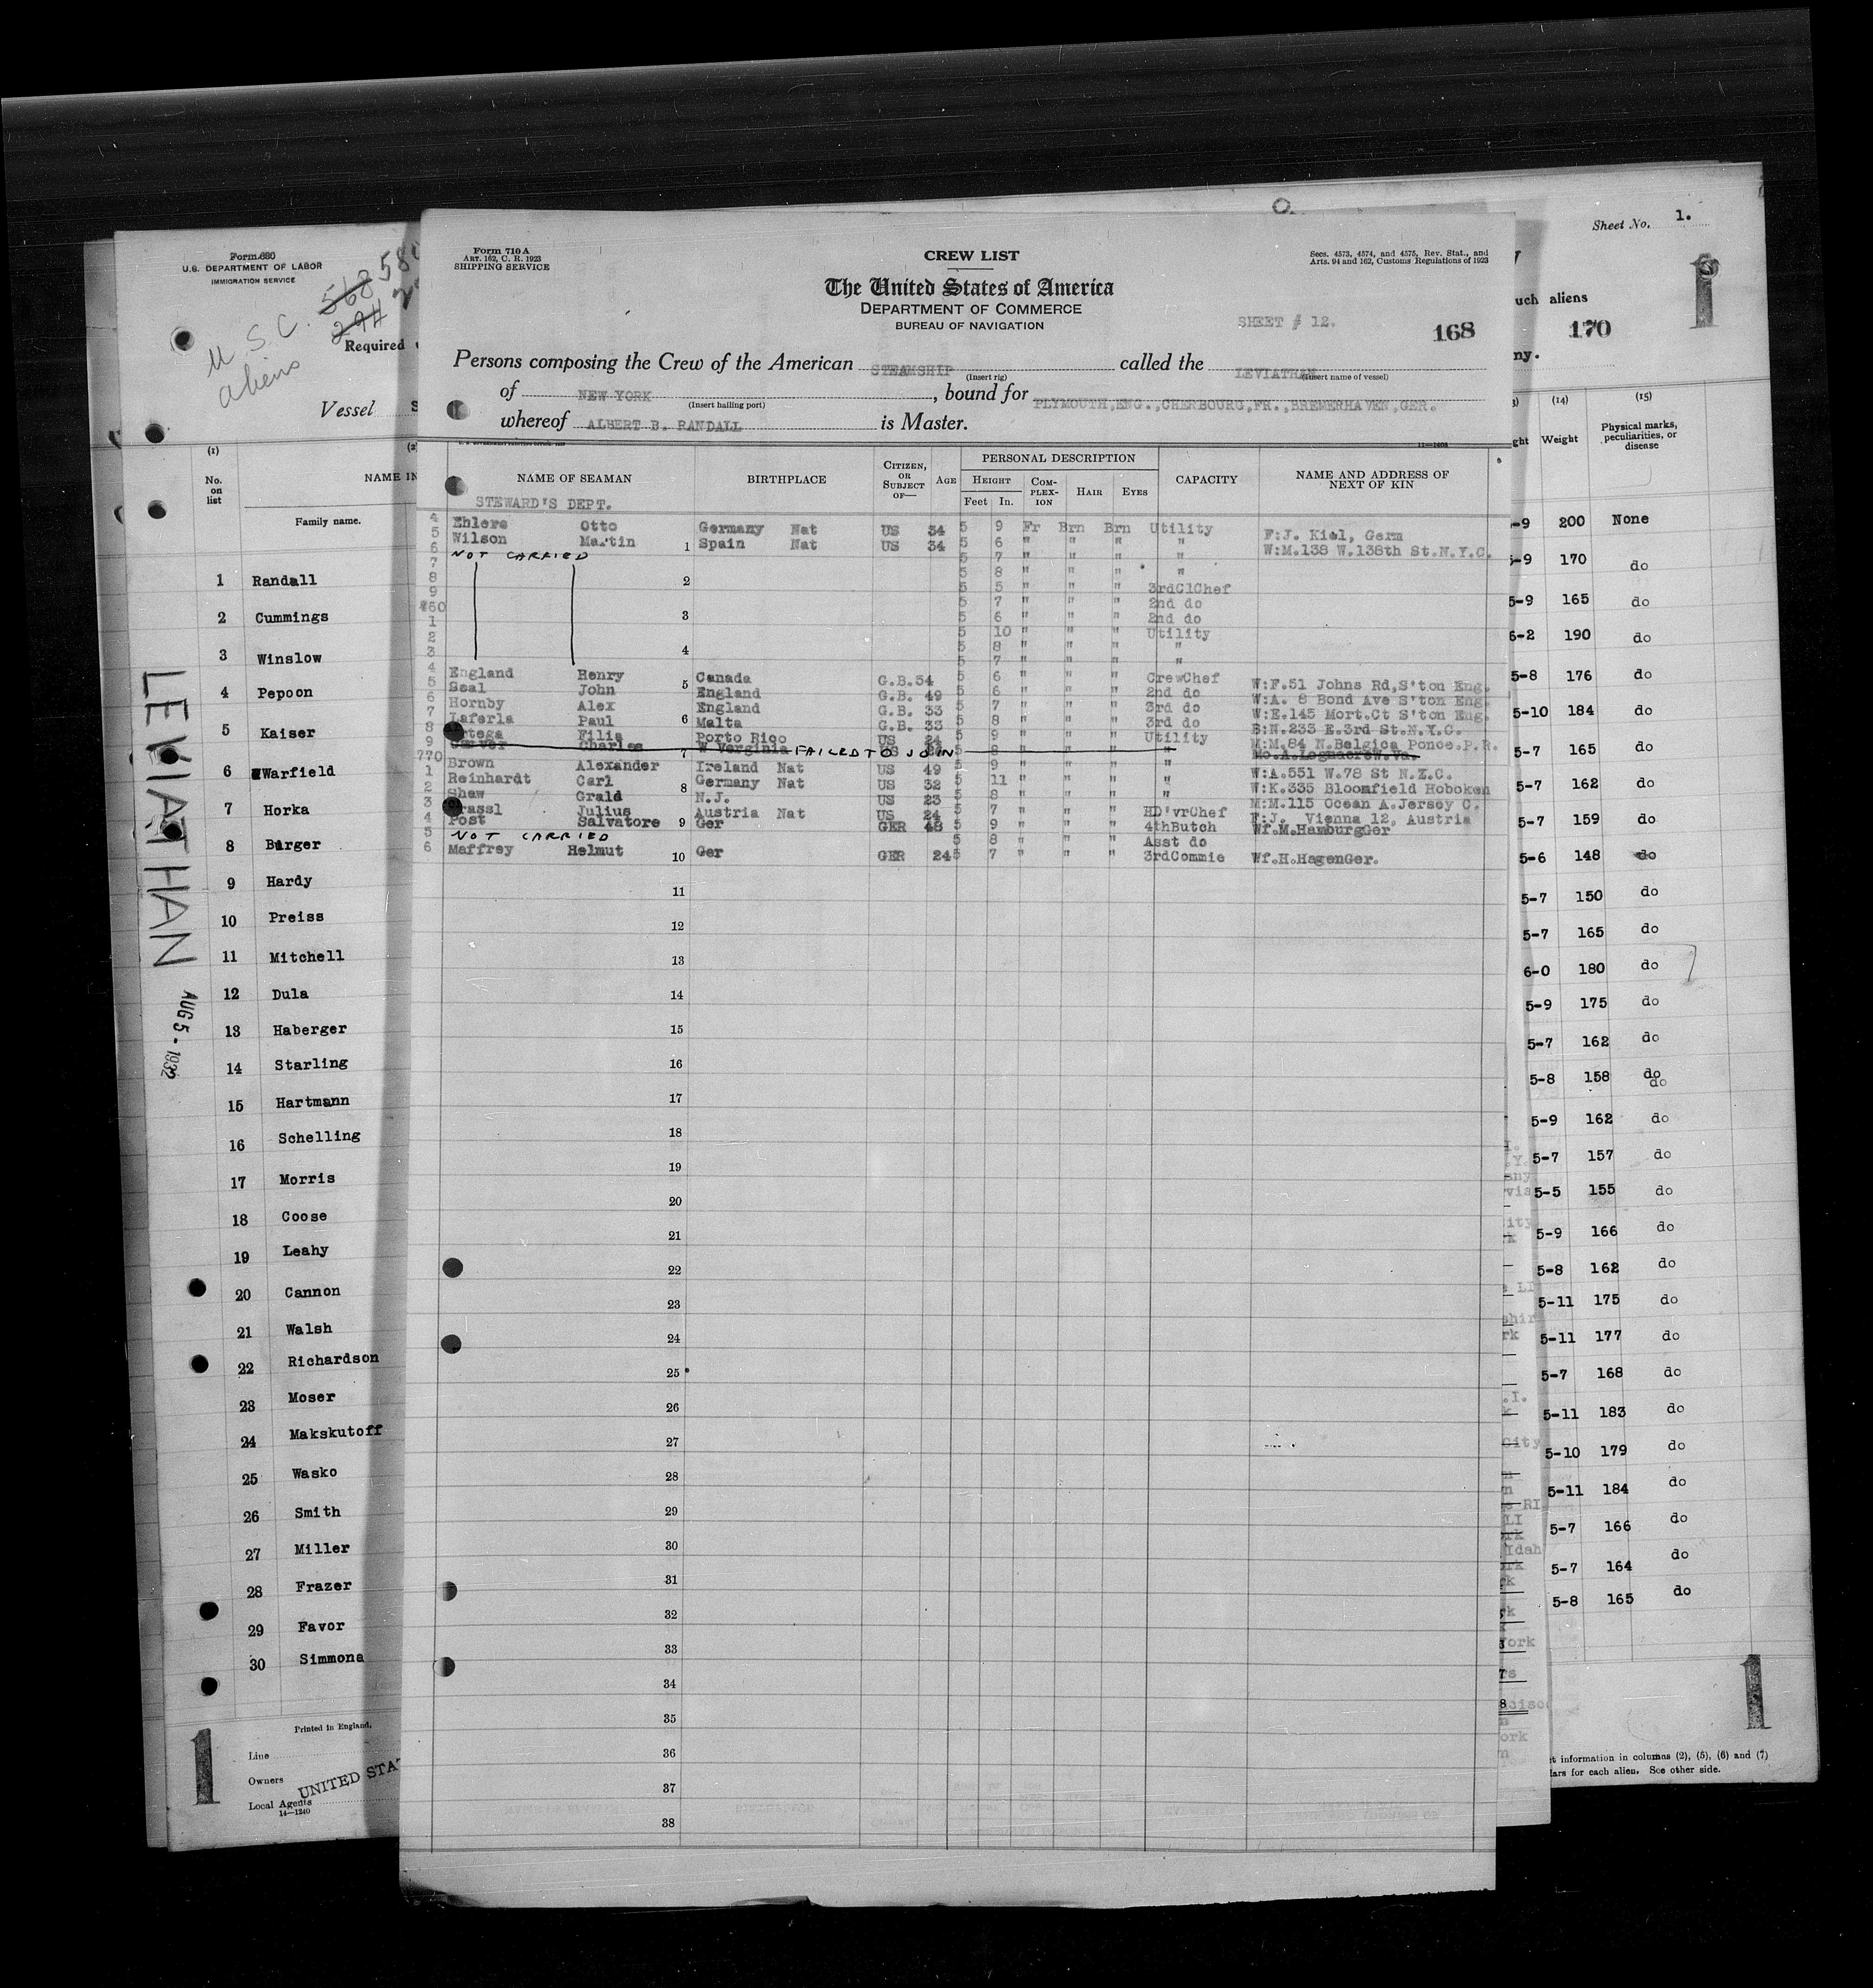 Form 710 A
ART. 162, C. R. 1923
SHIPPING SERVICE
CREW LIST
Secs. 4573, 4574, and 4575, Rev. Stat., and
Arts. 94 and 162, Customs Regulations of 1923
The United States of America
DEPARTMENT OF COMMERCE
BUREAU OF NAVIGATION
SHEET # 12.
168
Persons composing the Crew of the American STEAMSHIP called the LEVIATHAN
(Insert rig) (Insert name of vessel)
of NEW YORK, bound for PLYMOUTH,ENG.,CHERBOURG,FR.,BREMERHAVEN,GER.
(Insert hailing port)
whereof ALBERT B. RANDALL is Master.
NAME OF SEAMAN BIRTHPLACE CITIZEN, OR SUBJECT OF— AGE PERSONAL DESCRIPTION CAPACITY NAME AND ADDRESS OF NEXT OF KIN
HEIGHT COM-PLEX-ION HAIR EYES
Feet In.
STEWARD'S DEPT.
4 Ehlers Otto Germany Nat US 34 5 9 Fr Brn Brn Utility F:J. Kiel, Germ
5 Wilson Martin 1 Spain Nat US 34 5 6 " " " " W:M.138 W.138th St.N.Y.C.
6 NOT CARRIED 5 7 " " " "
7 5 8 " " " "
8 2 5 5 " " " 3rdClChef
9 5 7 " " " 2nd do
760 3 5 6 " " " 2nd do
1 5 10 " " " Utility
2 4 5 8 " " " "
3 5 7 " " " "
4 England Henry Canada G.B.54 5 6 " " " CrewChef W:F.51 Johns Rd,S'ton Eng.
5 Seal John 5 England G.B. 49 5 6 " " " 2nd do W:A. 8 Bond Ave S'ton Eng.
6 Hornby Alex England G.B. 33 5 7 " " " 3rd do W:E.145 Mort.Ct S'ton Eng.
7 Laferla Paul 6 Malta G.B. 33 5 8 " " " 3rd do B:N.233 E.3rd St.N.Y.C.
8 Ortega Filia Porto Rico US 24 5 9 " " " Utility M:M.84 N.Belgica Ponce.P.R.
9 Charles 7 W Verginia FAILED TO JOIN US 5 8 "
770 Brown Alexander Ireland Nat US 49 5 9 " " " " W:A.551 W.78 St N.Z.C.
1 Reinhardt Carl 8 Germany Nat US 32 5 11 " " " " W:K.335 Bloomfield Hoboken
2 Shaw Grald N.J. US 23 5 8 " " " " M:M.115 Ocean A.Jersey C.
3 Julius Austria Nat US 24 5 7 " " " HD'vrChef F:J. Vienna 12, Austria
4 Post Salvatore 9 Ger GER 48 5 9 " " " 4thButch Wf.M.HamburgGer
5 NOT CARRIED 5 8 " " " Asst do
6 Maffrey Helmut 10 Ger GER 24 5 7 " " " 3rdCommie Wf.H.HagenGer.
11
12
13
14
15
16
17
18
19
20
21
22
23
24
25
26
27
28
29
30
31
32
33
34
35
36
37
38
Form 680
U.S. DEPARTMENT OF LABOR
IMMIGRATION SERVICE
U S C.
aliens
568
Required
Vessel S
(1) (2)
No. on list NAME IN
Family name.
1 Randall
2 Cummings
3 Winslow
4 Pepoon
5 Kaiser
6 Warfield
7 Horka
8 Burger
9 Hardy
10 Preiss
11 Mitchell
12 Dula
13 Haberger
14 Starling
15 Hartmann
16 Schelling
17 Morris
18 Coose
19 Leahy
20 Cannon
21 Walsh
22 Richardson
23 Moser
24 Makskutoff
25 Wasko
26 Smith
27 Miller
28 Frazer
29 Favor
30 Simmons
LEVIATHAN
AUG 5 - 1932
1
Printed in England.
Line
Owners UNITED STA
Local Agents
14—1240
Sheet No. 1.
uch aliens
170
ny.
(14) (15)
ght Weight Physical marks, peculiarities, or disease
-9 200 None
5-9 170 do
5-9 165 do
6-2 190 do
5-8 176 do
5-10 184 do
5-7 165 do
5-7 162 do
5-7 159 do
5-6 148 do
5-7 150 do
5-7 165 do
6-0 180 do
5-9 175 do
5-7 162 do
5-8 158 do
do
5-9 162 do
5-7 157 do
5-5 155 do
5-9 166 do
5-8 162 do
5-11 175 do
5-11 177 do
5-7 168 do
5-11 183 do
5-10 179 do
5-11 184 do
5-7 166 do
5-7 164 do
5-8 165 do
1
t information in columns (2), (5), (6) and (7)
lars for each alien. See other side.